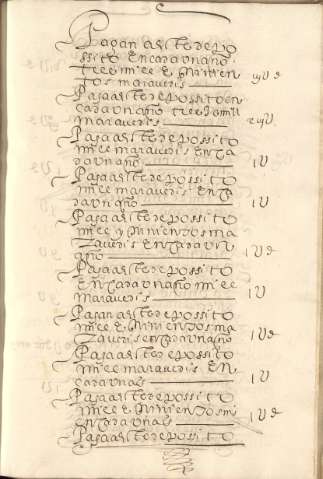 Pagan a este depo
ssito en cada un año
tres mill e quinien
tos maravedis
Paga a este depossito en
cada un año tres mill
maravedis
Paga a este depossito
mill maravedis en ca
da un año
Paga a este depossito
mill maravedis en ca
da un año
Paga a este depossito
mill y quinientos ma
ravedis en cada un
año
Paga a este depossito
en cada un año mill
maravedis
Pagan a este depossito
mill e quinientos ma
ravedis en cada un año
Paga a este depossito
mill maravedis en
cada un año
Paga a este depossito
mill e quinientos
en cada un año
Paga a este depossito